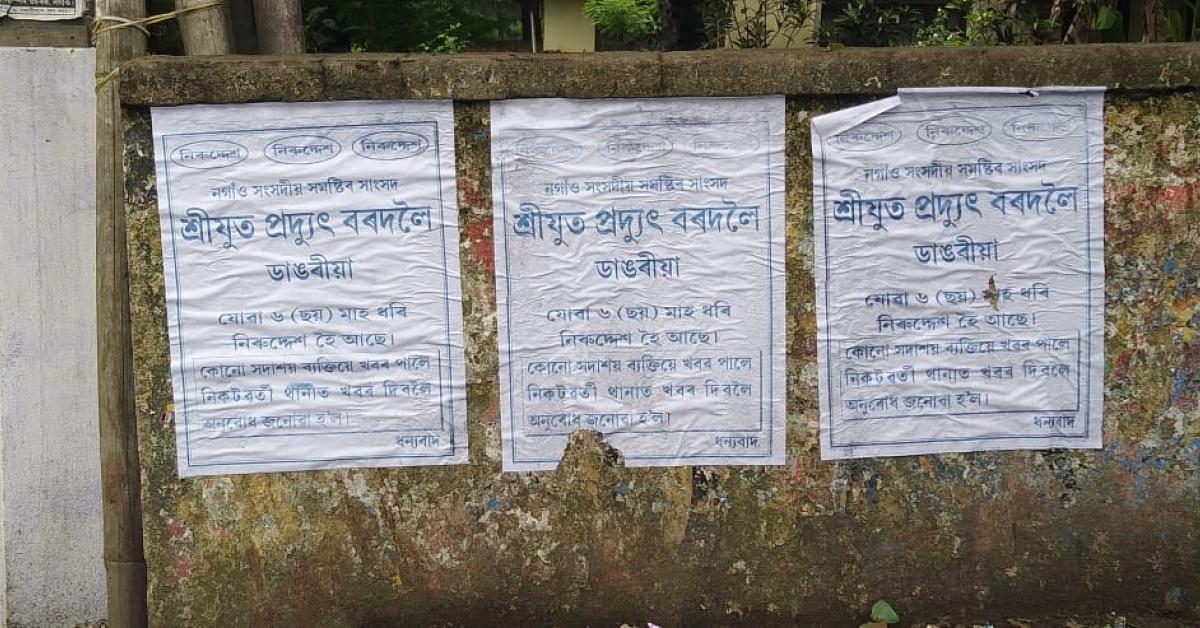 নিৰুদ্দেশ নিৰুদ্দেশ নিৰুদ্দেশ
নগাঁও সংসদীয় সমষ্টিৰ সাংসদ
শ্ৰীযুত প্ৰদ্যুৎ বৰদলৈ
ডাঙৰীয়া
যোৱা ৬ (ছয়) মাহ ধৰি
নিৰুদ্দেশ হৈ আছে।
কোনো সদাশয় ব্যক্তিয়ে খবৰ পালে
নিকটৱৰ্তী থানাত খবৰ দিবলৈ
অনুৰোধ জনোৱা হ'ল।
ধন্যবাদ
নিৰুদ্দেশ নিৰুদ্দেশ নিৰুদ্দেশ
নগাঁও সংসদীয় সমষ্টিৰ সাংসদ
শ্ৰীযুত প্ৰদ্যুৎ বৰদলৈ
ডাঙৰীয়া
যোৱা ৬ (ছয়) মাহ ধৰি
নিৰুদ্দেশ হৈ আছে।
কোনো সদাশয় ব্যক্তিয়ে খবৰ পালে
নিকটৱৰ্তী থানাত খবৰ দিবলৈ
অনুৰোধ জনোৱা হ'ল।
ধন্যবাদ
নিৰুদ্দেশ নিৰুদ্দেশ নিৰুদ্দেশ
নগাঁও সংসদীয় সমষ্টিৰ সাংসদ
শ্ৰীযুত প্ৰদ্যুৎ বৰদলৈ
ডাঙৰীয়া
যোৱা ৬ (ছয়) মাহ ধৰি
নিৰুদ্দেশ হৈ আছে।
কোনো সদাশয় ব্যক্তিয়ে খবৰ পালে
নিকটৱৰ্তী থানাত খবৰ দিবলৈ
অনুৰোধ জনোৱা হ'ল।
ধন্যবাদ